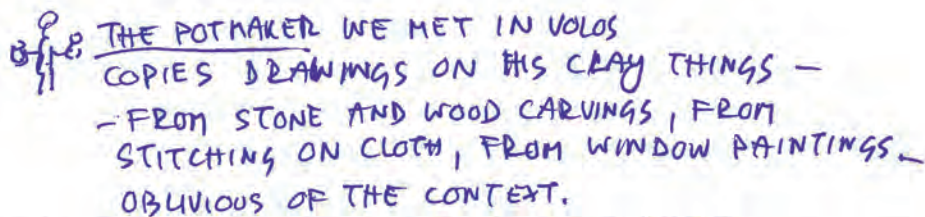 THE POTMAKER WE MET IN VOLOS
COPIES DRAWINGS ON HIS CLAY THINGS —
– FROM STONE AND WOOD CARVINGS, FROM
STITCHING ON CLOTH, FROM WINDOW PAINTINGS –
OBLIVIOUS OF THE CONTEXT.